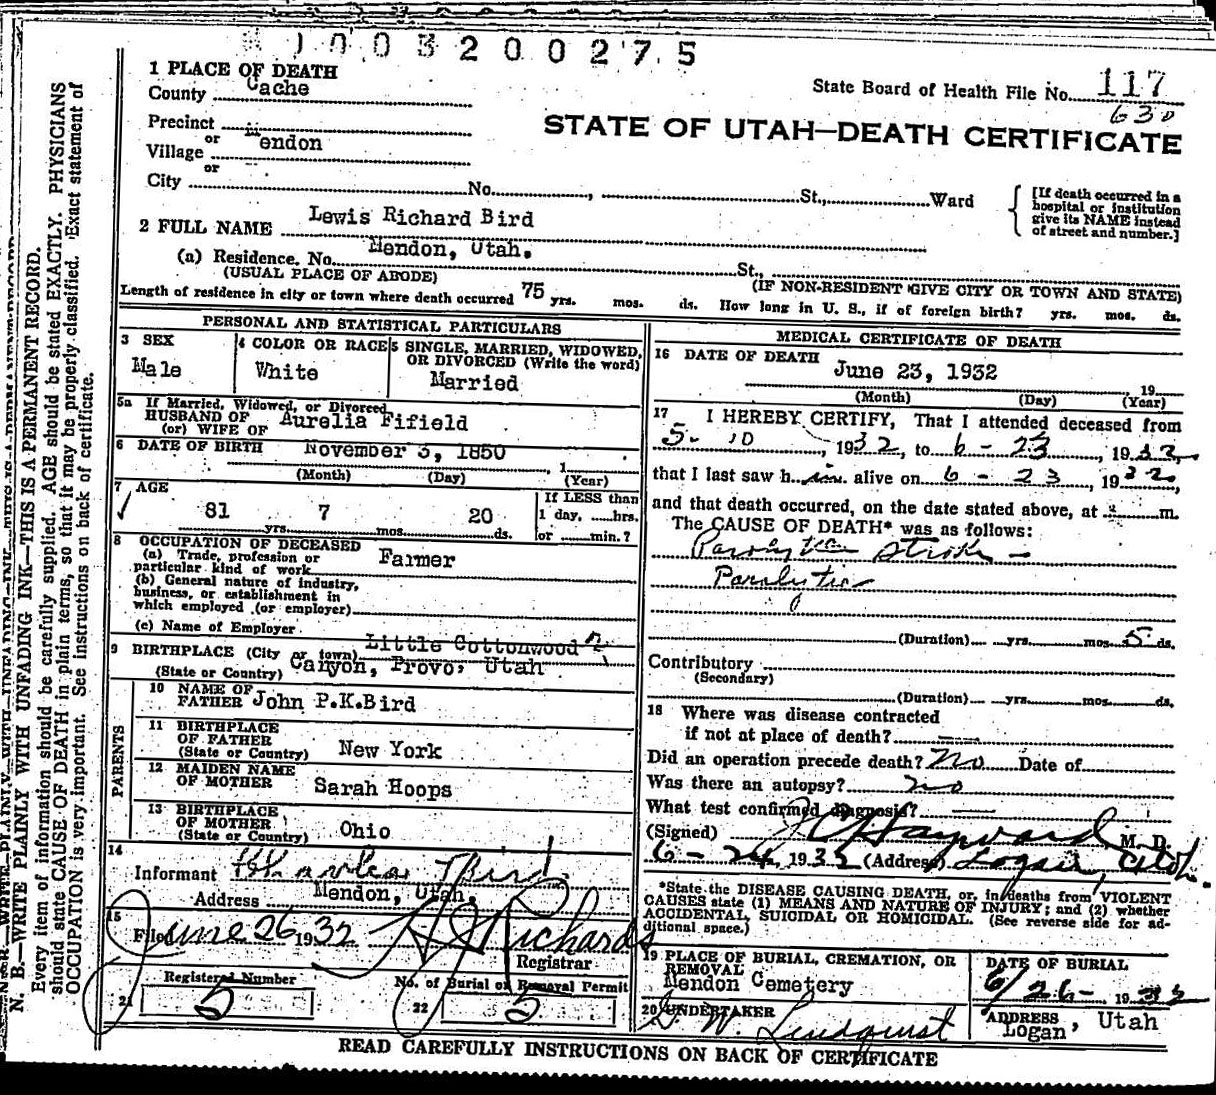 1003200275
1 PLACE OF DEATH
County Cache
State Board of Health File No. 117
630
Precinct
or
Village Mendon
or
City No. , St., Ward
STATE OF UTAH—DEATH CERTIFICATE
[If death occurred in a
hospital or institution
give its NAME instead
of street and number.]
2 FULL NAME Lewis Richard Bird
(a) Residence. No. Mendon, Utah. St.,
(USUAL PLACE OF ABODE)
(IF NON-RESIDENT GIVE CITY OR TOWN AND STATE)
Length of residence in city or town where death occurred 75 yrs. mos. ds. How long in U. S., if of foreign birth? yrs. mos. ds.
PERSONAL AND STATISTICAL PARTICULARS
3 SEX
Male
4 COLOR OR RACE
White
5 SINGLE, MARRIED, WIDOWED,
OR DIVORCED (Write the word)
Married
5a If Married, Widowed, or Divorced
HUSBAND OF
(or) WIFE OF Aurelia Fifield
6 DATE OF BIRTH November 3, 1850
, 1
(Month) (Day) (Year)
7 AGE
81 yrs. 7 mos. 20 ds.
If LESS than
1 day, hrs.
or min.?
8 OCCUPATION OF DECEASED
(a) Trade, profession or
particular kind of work Farmer
(b) General nature of industry,
business, or establishment in
which employed (or employer)
(c) Name of Employer
9 BIRTHPLACE (City or town) Little Cottonwood
(State or Country) Canyon, Provo, Utah
PARENTS
10 NAME OF
FATHER John P.K.Bird
11 BIRTHPLACE
OF FATHER
(State or Country) New York
12 MAIDEN NAME
OF MOTHER Sarah Hoops
13 BIRTHPLACE
OF MOTHER
(State or Country) Ohio
14
Informant Charles Bird
Address Mendon, Utah.
15
Filed June 26 1932 Richards
Registrar
Registered Number
21 5
No. of Burial or Removal Permit
22 5
MEDICAL CERTIFICATE OF DEATH
16 DATE OF DEATH June 23, 1932
19
(Month) (Day) (Year)
17 I HEREBY CERTIFY, That I attended deceased from
5-10, 1932, to 6-23, 1932,
that I last saw him alive on 6-23, 1932,
and that death occurred, on the date stated above, at m.
The CAUSE OF DEATH* was as follows:
Paralytic stroke –
Paralytic
(Duration) yrs. mos. 5 ds.
Contributory
(Secondary)
(Duration) yrs. mos. ds.
18 Where was disease contracted
if not at place of death?
Did an operation precede death? No Date of
Was there an autopsy? no
What test confirmed diagnosis?
(Signed) Hayward M. D.
6-24, 1932 (Address) Logan, Utah.
*State the DISEASE CAUSING DEATH, or, in deaths from VIOLENT
CAUSES state (1) MEANS AND NATURE OF INJURY; and (2) whether
ACCIDENTAL, SUICIDAL OR HOMICIDAL. (See reverse side for ad-
ditional space.)
19 PLACE OF BURIAL, CREMATION, OR
REMOVAL
Mendon Cemetery
DATE OF BURIAL
6/26-, 1932
20 UNDERTAKER
W. Lindquist
ADDRESS
Logan, Utah
READ CAREFULLY INSTRUCTIONS ON BACK OF CERTIFICATE
N. B.—WRITE PLAINLY WITH UNFADING INK—THIS IS A PERMANENT RECORD.
Every item of information should be carefully supplied. AGE should be stated EXACTLY. PHYSICIANS
should state CAUSE OF DEATH in plain terms, so that it may be properly classified. Exact statement of
OCCUPATION is very important. See instructions on back of certificate.